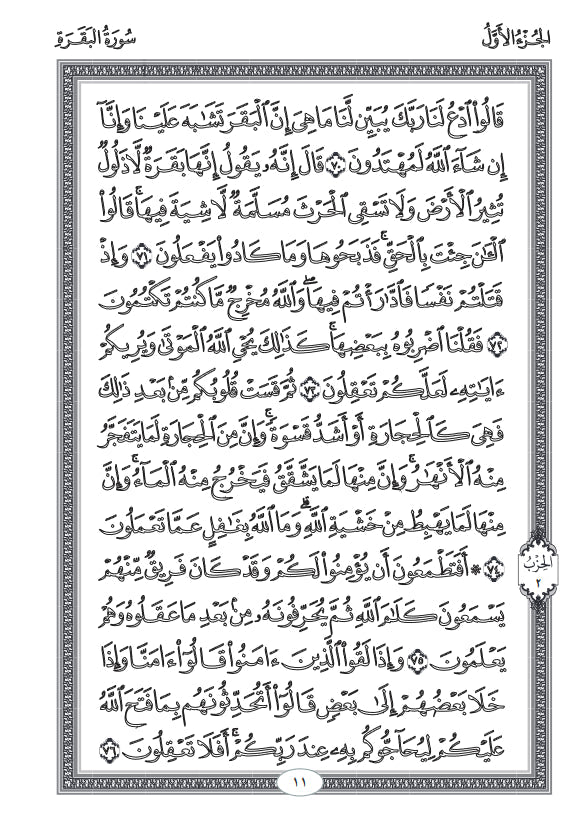 الجُزْءُ الأَوَّلُ
سُورَةُ البَقَرَةِ
قَالُوا۟ ٱدْعُ لَنَا رَبَّكَ يُبَيِّن لَّنَا مَا هِىَ إِنَّ ٱلْبَقَرَ تَشَٰبَهَ عَلَيْنَا وَإِنَّآ
إِن شَآءَ ٱللَّهُ لَمُهْتَدُونَ ٧٠ قَالَ إِنَّهُۥ يَقُولُ إِنَّهَا بَقَرَةٌ لَّا ذَلُولٌ
تُثِيرُ ٱلْأَرْضَ وَلَا تَسْقِى ٱلْحَرْثَ مُسَلَّمَةٌ لَّا شِيَةَ فِيهَا ۚ قَالُوا۟
ٱلْـَٰٔنَ جِئْتَ بِٱلْحَقِّ ۚ فَذَبَحُوهَا وَمَا كَادُوا۟ يَفْعَلُونَ ٧١ وَإِذْ
قَتَلْتُمْ نَفْسًا فَٱدَّٰرَْٰٔتُمْ فِيهَا ۖ وَٱللَّهُ مُخْرِجٌ مَّا كُنتُمْ تَكْتُمُونَ
٧٢ فَقُلْنَا ٱضْرِبُوهُ بِبَعْضِهَا ۚ كَذَٰلِكَ يُحْىِ ٱللَّهُ ٱلْمَوْتَىٰ وَيُرِيكُمْ
ءَايَٰتِهِۦ لَعَلَّكُمْ تَعْقِلُونَ ٧٣ ثُمَّ قَسَتْ قُلُوبُكُم مِّنۢ بَعْدِ ذَٰلِكَ
فَهِىَ كَٱلْحِجَارَةِ أَوْ أَشَدُّ قَسْوَةً ۚ وَإِنَّ مِنَ ٱلْحِجَارَةِ لَمَا يَتَفَجَّرُ
مِنْهُ ٱلْأَنْهَٰرُ ۚ وَإِنَّ مِنْهَا لَمَا يَشَّقَّقُ فَيَخْرُجُ مِنْهُ ٱلْمَآءُ ۚ وَإِنَّ
مِنْهَا لَمَا يَهْبِطُ مِنْ خَشْيَةِ ٱللَّهِ ۗ وَمَا ٱللَّهُ بِغَٰفِلٍ عَمَّا تَعْمَلُونَ
٧٤ ۞ أَفَتَطْمَعُونَ أَن يُؤْمِنُوا۟ لَكُمْ وَقَدْ كَانَ فَرِيقٌ مِّنْهُمْ
الحِزْبُ
٢
يَسْمَعُونَ كَلَٰمَ ٱللَّهِ ثُمَّ يُحَرِّفُونَهُۥ مِنۢ بَعْدِ مَا عَقَلُوهُ وَهُمْ
يَعْلَمُونَ ٧٥ وَإِذَا لَقُوا۟ ٱلَّذِينَ ءَامَنُوا۟ قَالُوٓا۟ ءَامَنَّا وَإِذَا
خَلَا بَعْضُهُمْ إِلَىٰ بَعْضٍ قَالُوٓا۟ أَتُحَدِّثُونَهُم بِمَا فَتَحَ ٱللَّهُ
عَلَيْكُمْ لِيُحَآجُّوكُم بِهِۦ عِندَ رَبِّكُمْ ۚ أَفَلَا تَعْقِلُونَ ٧٦
١١